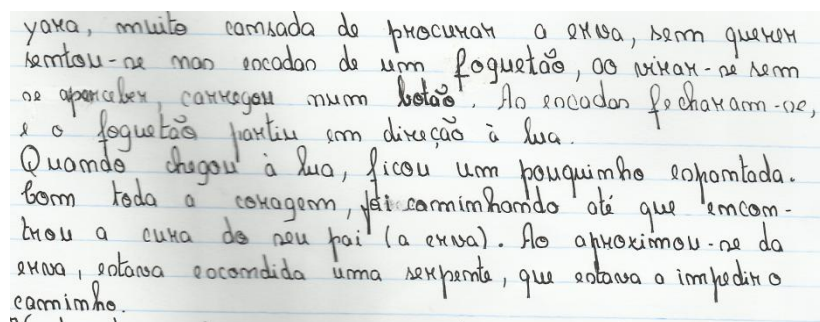 yara, muito cansada de procurar a erva, sem querer
sentou-se nas escadas de um foguetão, ao virar-se sem
se aperceber, carregou num botão. As escadas fecharam-se,
e o foguetão partiu em direção à lua.
Quando chegou à lua, ficou um pouquinho espantada.
Com toda a coragem, foi caminhando até que encon-
trou a cura do seu pai (a erva). Ao aproximou-se da
erva, estava escondida uma serpente, que estava a impedir o
caminho.